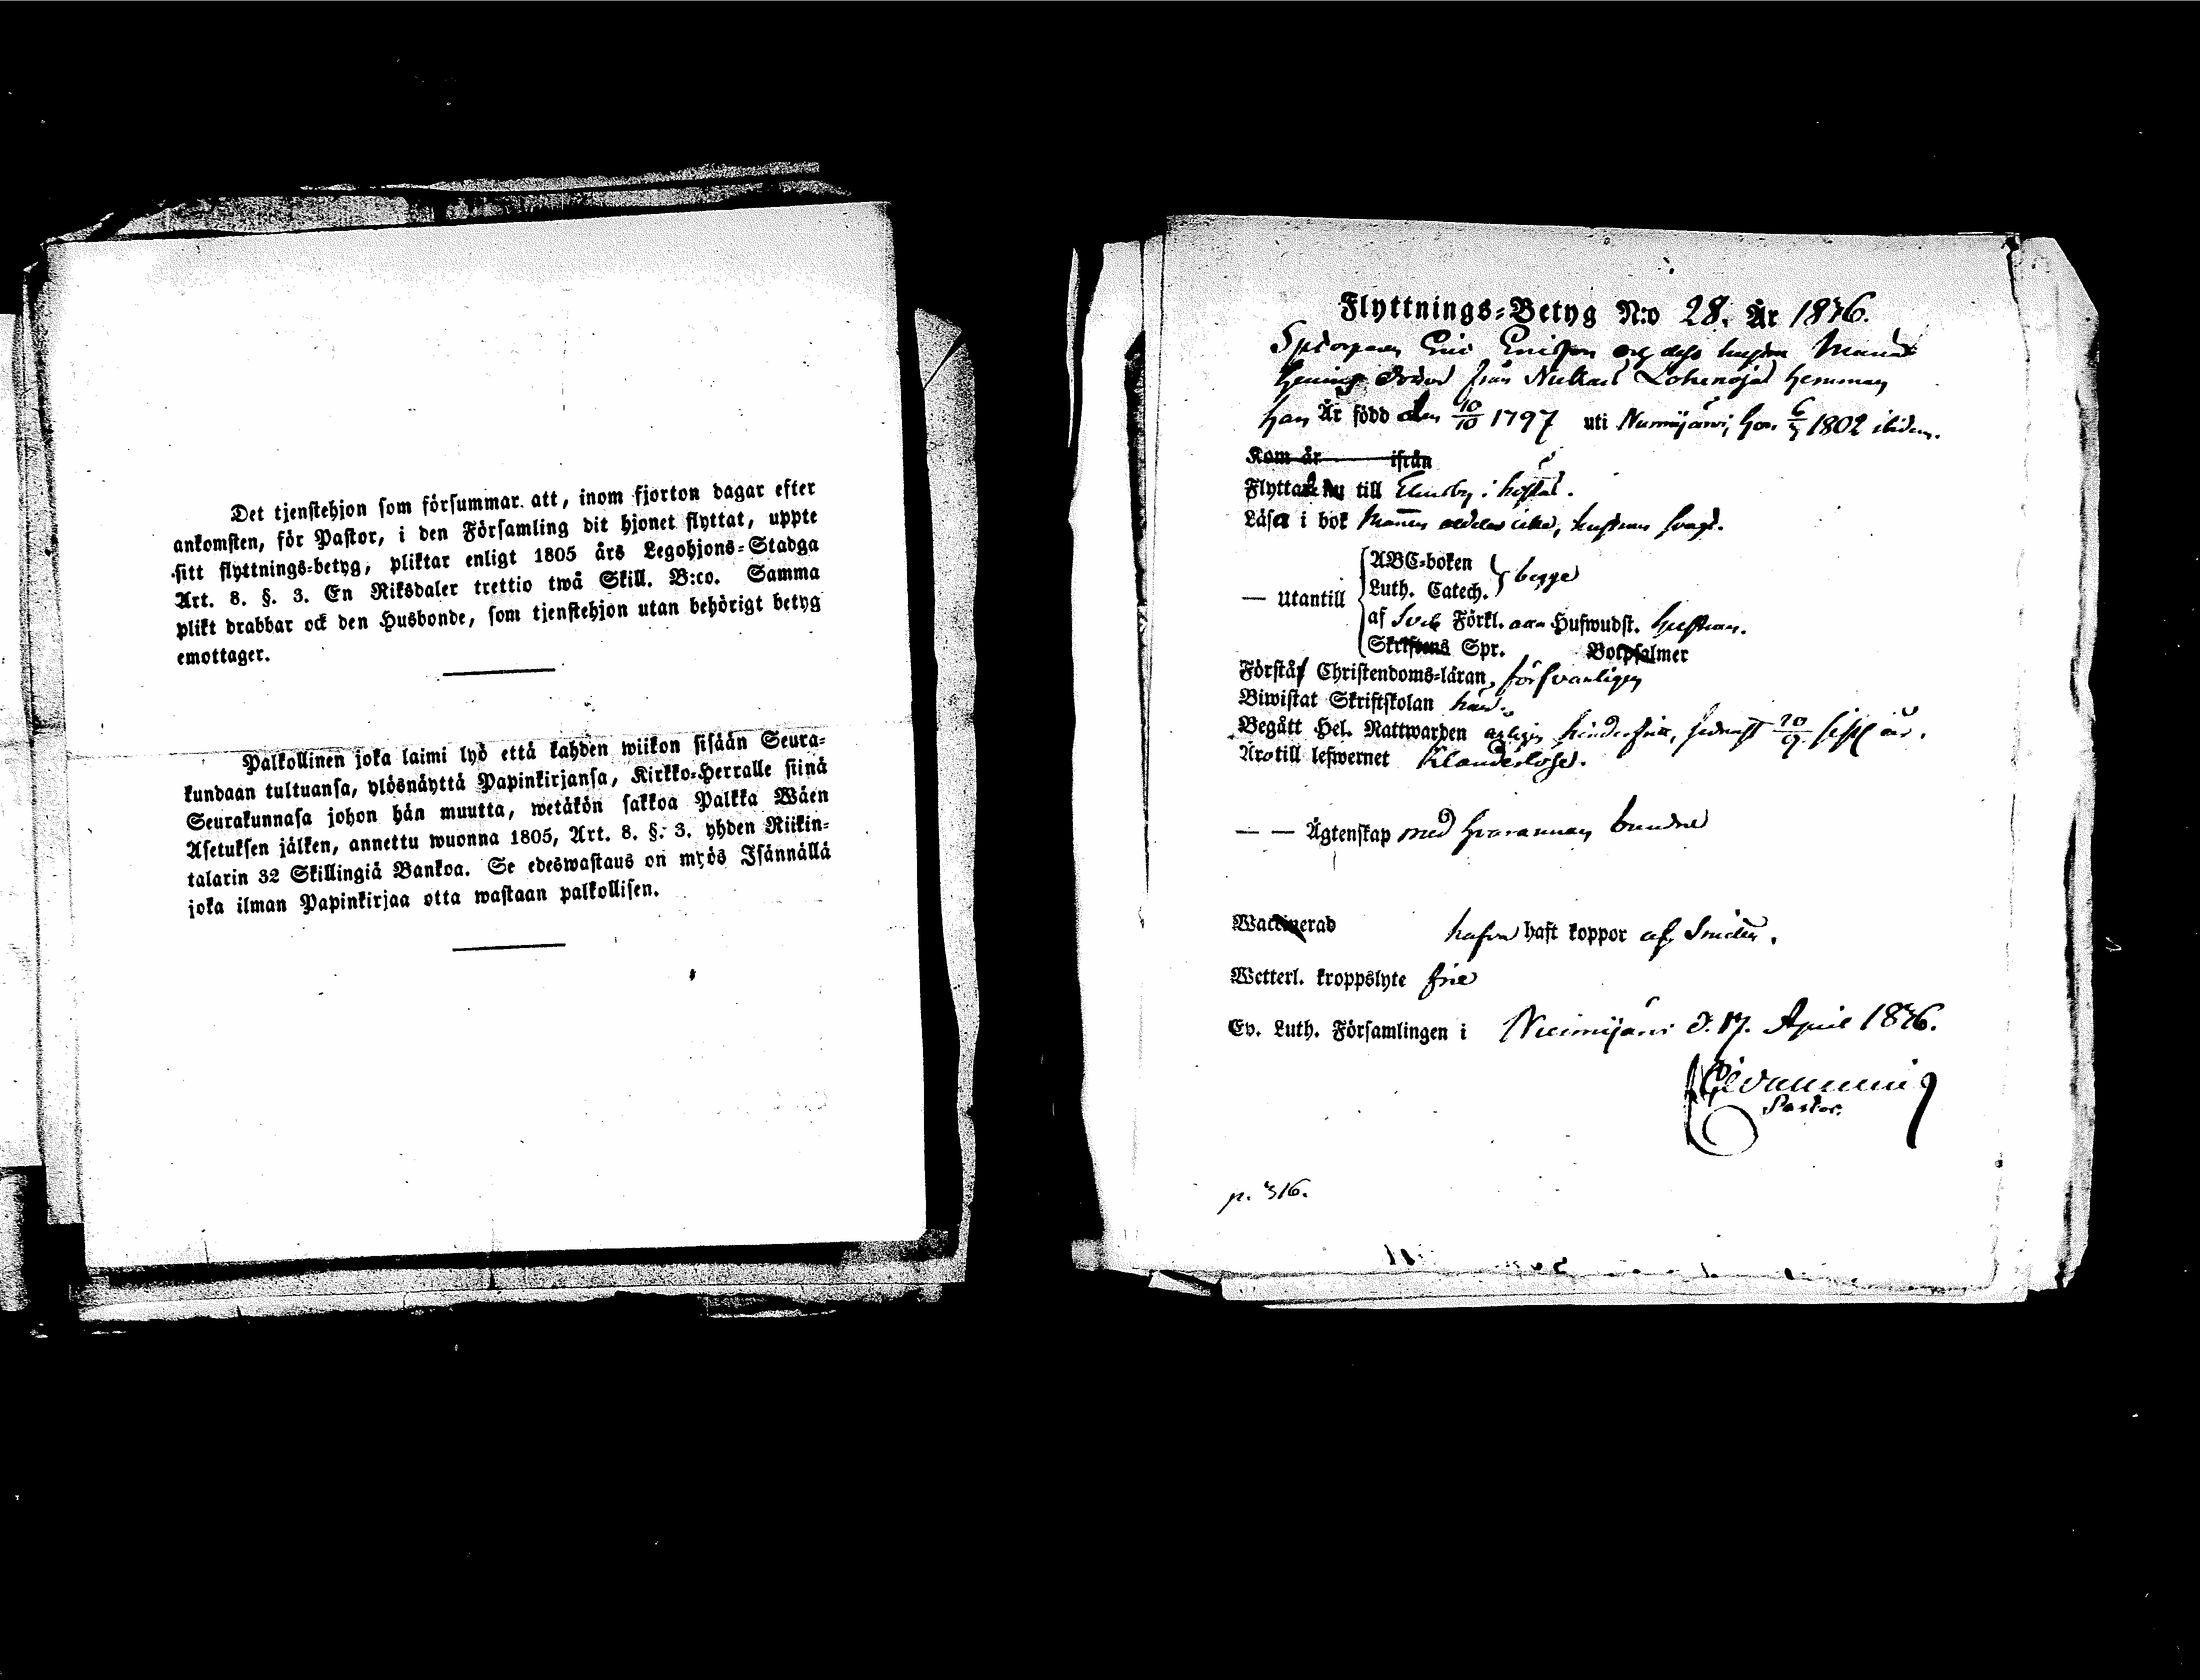 Det tjenstehjon som försummar att, inom fjorton dagar efter
ankomsten, för Pastor, i den Församling dit hjonet flyttat, uppte
sitt flyttnings-betyg, pliktar enligt 1805 års Legohjons-Stadga
Art. 8. §. 3. En Riksdaler trettio twå Skill. B:co. Samma
plikt drabbar ock den Husbonde, som tjenstehjon utan behörigt betyg
emottager.
Palkollinen joka laimi lyö että kahden wiikon sisään Seura-
kundaan tultuansa, ylösnäyttä Papinkirjansa, Kirkko-Herralle siinä
Seurakunnasa johon hän muutta, wetäkön sakkoa Palkka Wäen
Asetuksen jälken, annettu wuonna 1805, Art. 8. §. 3. yhden Riikin-
talarin 32 Skillingiä Bankoa. Se edeswastaus on myös Isännällä
joka ilman Papinkirjaa otta wastaan palkollisen.
Flyttnings-Betyg N:o 28. År 1846.
Eric Ericsson och dess hustru
från Lohinoja hemman
han Är född den 10/10 1797 uti Nurmijärvi, hon 1802 ibidem.
Kom år ifrån
Flytta nu till i
Läsa i bok Mannen alldeles icke, hustrun svagt.
— Utantill ABC-boken
Luth. Catech. begge
af Sveb. Förkl. Hufwudst. hustrun.
Skriftens Spr. Botpsalmer
Förstå Christendoms-läran, försvarligen
Biwistat Skriftskolan
Begått Hel. Nattwarden hinderfritt, sednast 20/9 år.
Äro till lefwernet Klanderlöse.
— — Ägtenskap med hvarannan bundne
Waccinerad hafva haft koppor
Wetterl. kroppslyte frie
Ev. Luth. Församlingen i Nurmijärvi d. 17. April 1846.
Pastor.
p. 316.